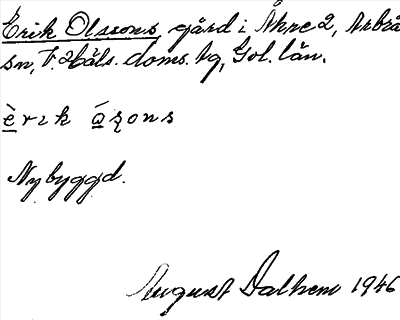 Erik Olssons gård i Åhre 2, Arbrå
sn, V. Häls. doms. hg, Gvl. län.
èrik ósons
Nybyggd.
August Dalhem 1946